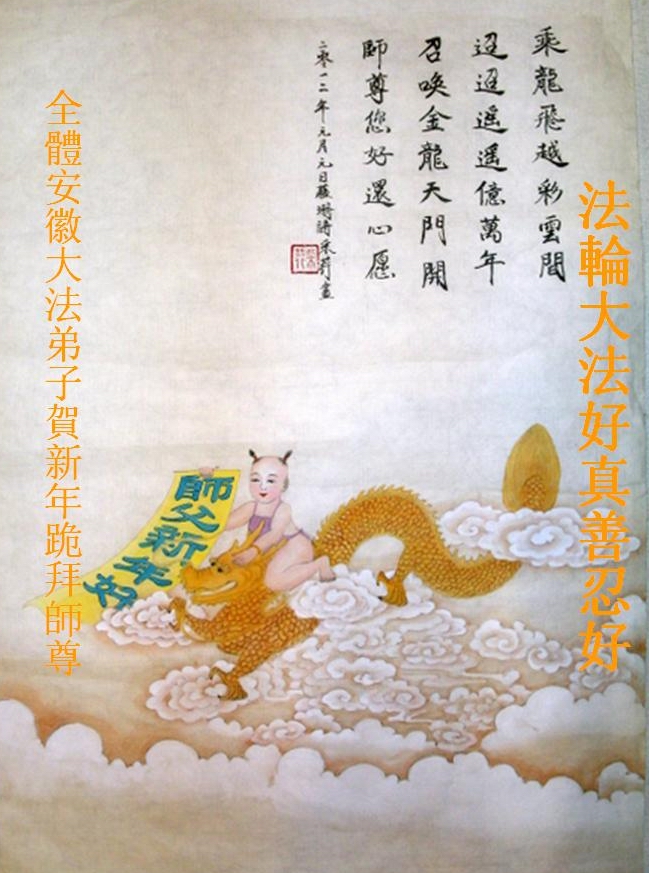 法輪大法好真善忍好
乘龍飛越彩雲間
迢迢遥遥億萬年
召喚金龍天門開
師尊您好還心愿
二零一二年元月元日
師父新年好
全體安徽大法弟子賀新年跪拜師尊